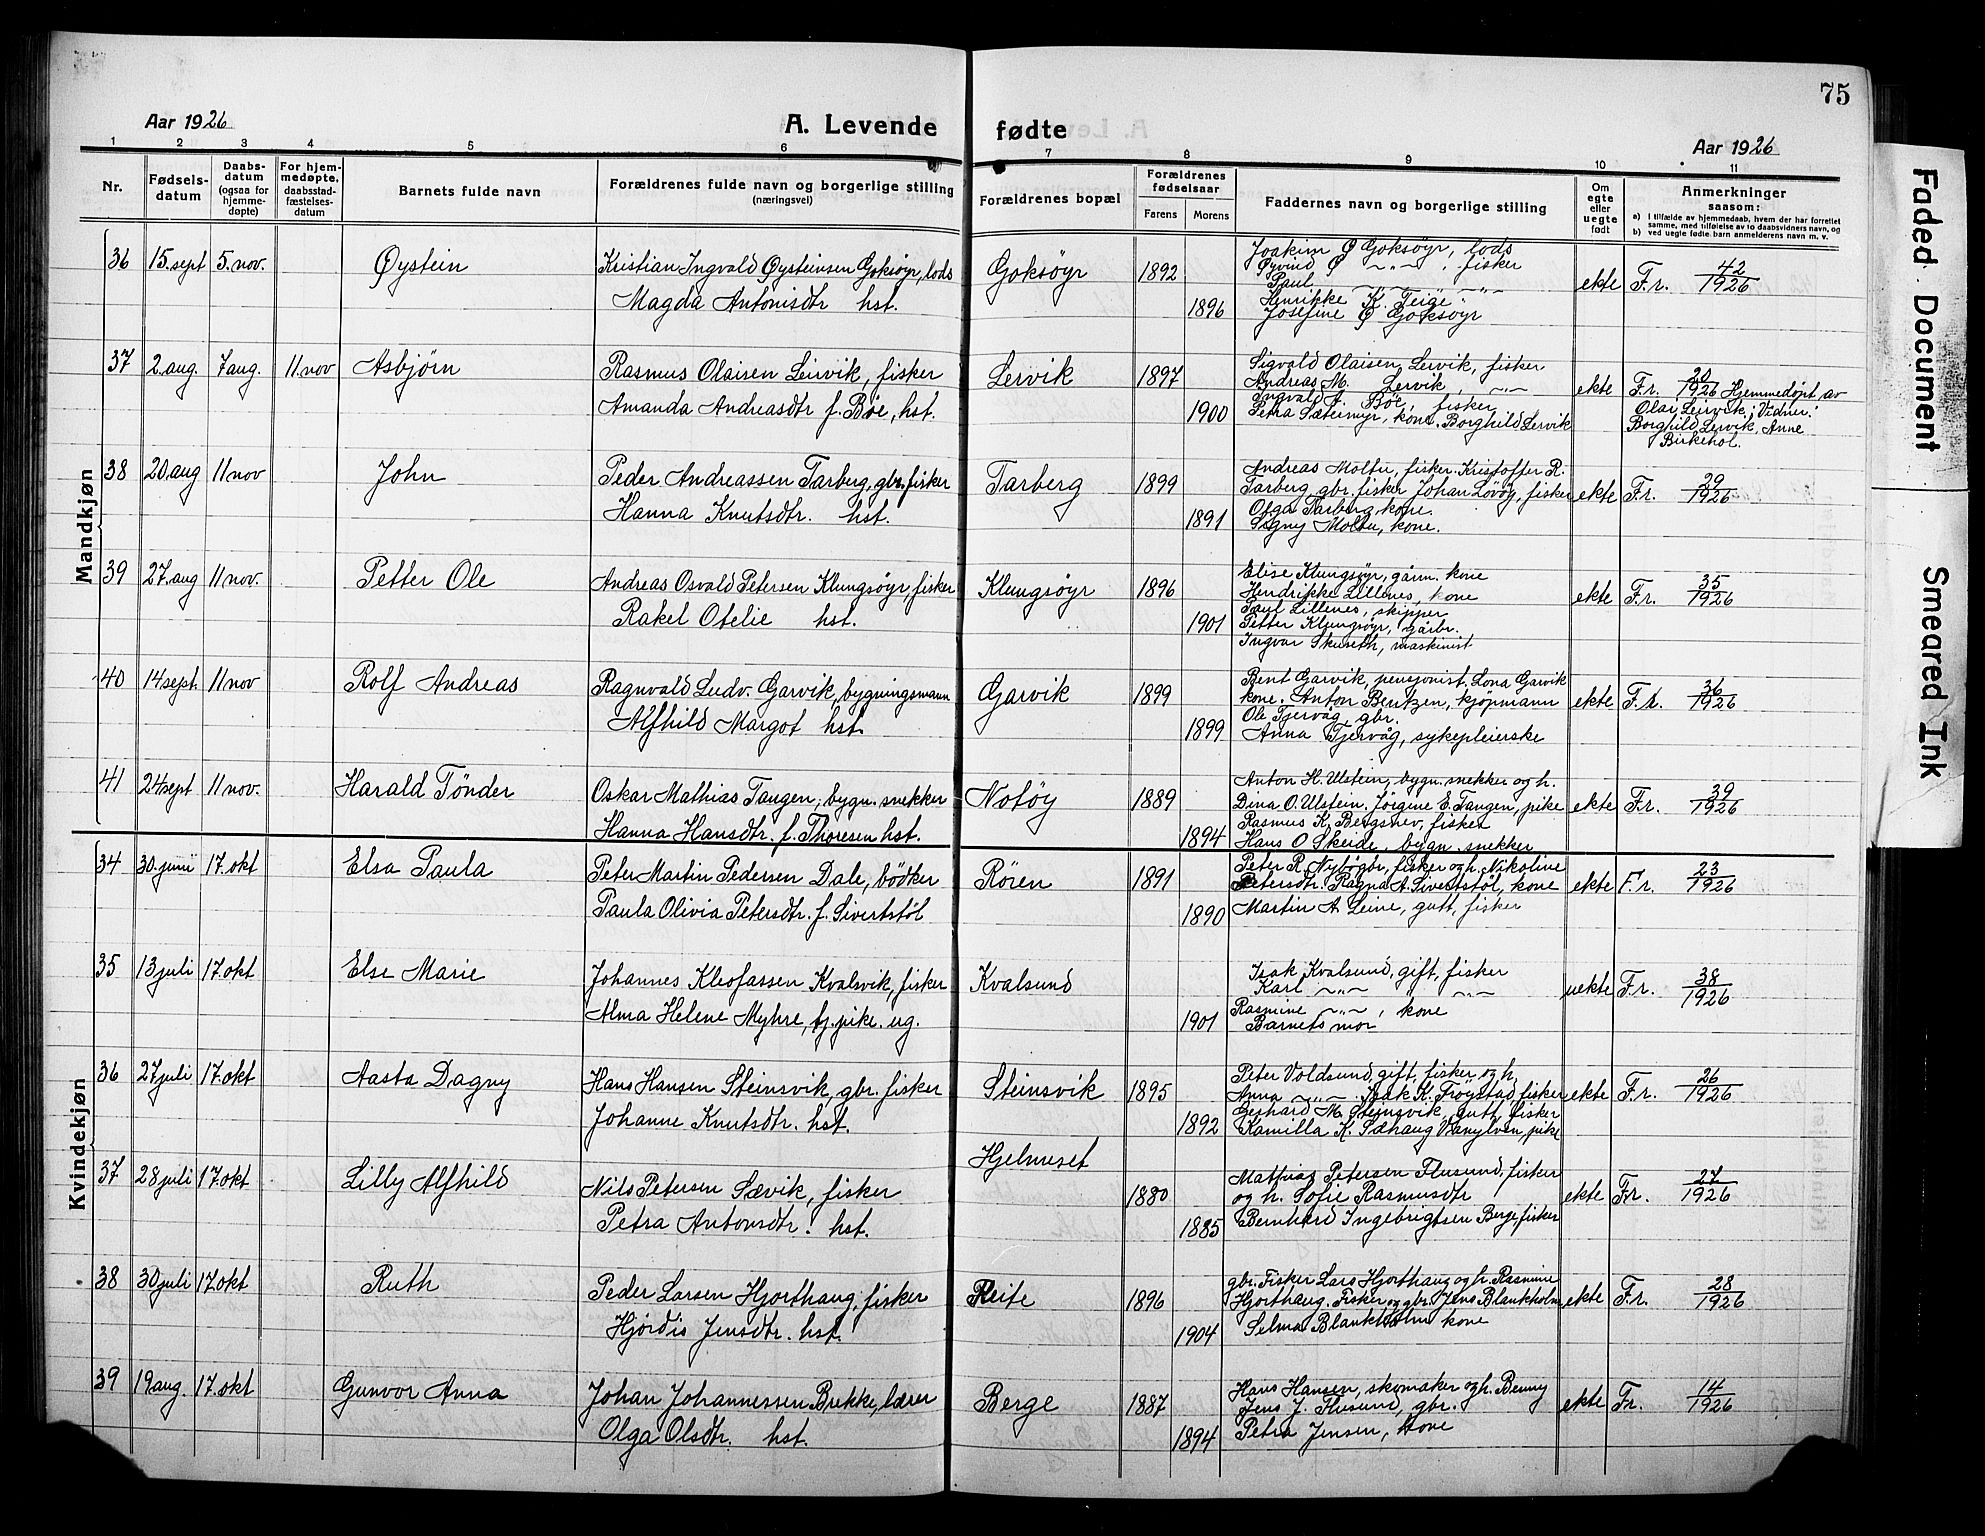 75
Aar 1926
A. Levende
fødte
Aar 1926
1 2 3 4 5 6 7 8 9 10 11
Nr.
Fødsels-
datum
Daabs-
datum
(ogsaa for
hjemme-
døpte)
For hjem-
medøpte,
daabsstad-
fæstelses-
datum
Barnets fulde navn
Forældrenes fulde navn og borgerlige stilling
(næringsvei)
Forældrenes bopæl
Forældrenes
fødselsaar
Farens
Morens
Faddernes navn og borgerlige stilling
Om
egte
eller
uegte
født
Anmerkninger
saasom:
a) I tilfælde av hjemmedaab, hvem der har forrettet
samme, med tilføielse av to daabsvidners navn, og
b) ved uegte fødte barn anmelderens navn m. v.
Mandkjøn
36 15. sept 5. nov. Øystein
Kristian Ingvald Øysteinsen Goksøyr, lods
Magda Antonisdtr hst.
Goksøyr 1892
1896
Joakim Ø Goksøyr, lods
Øyvind Ø -"- , fisker
Paul -"- -"-
Henrikke K. Teige.
Josefine Ø Goksøyr
ekte F.r. 42/1926
37 2. aug. 7 aug. 11. nov Asbjørn
Rasmus Olaisen Leirvik, fisker
Amanda Andreasdtr f. Bøe, hst.
Lervik 1897
1900
Sigvald Olaisen Lervik, fisker
Andreas M. Lervik, -"-
Ingvald A. Bøe, fisker
Petra Sætermyr, kone. Borghild Lervik
ekte F.r. 20/1926 Hjemmedøpt av
Olai Leirvik. Vidner:
Borghild Lervik, Anne
Birkehol.
38 20 aug 11 nov John
Peder Andreassen Tarberg, gbr. fisker
Hanna Knutsdtr. hst.
Tarberg 1899
1891
Andreas Moltu, fisker. Kristoffer R.
Tarberg gbr. fisker Johan Løvøy, fisker
Olga Tarberg kone.
Signy Moltu, kone.
ekte F.r. 29/1926
39 27. aug 11 nov. Petter Ole
Andreas Osvald Petersen Klungsøyr, fisker
Rakel Otelie hst.
Klungsøyr 1896
1901
Elise Klungsøyr, gårm. kone
Hendrikke Lillenes, kone
Paul Lillenes, skipper
Petter Klungsøyr, gårbr.
Ingvar Skuseth, maskinist
ekte F.r. 35/1926
40 14 sept. 11 nov Rolf Andreas
Ragnvald Ludv. Garvik, bygningsmann
Alfhild Margot hst.
Garvik 1899
1899
Bent Garvik, pensjonist, Lona Garvik
kone. Anton Bentzen, kjøpmann
Ole Tjervåg, gbr.
Anna Tjervåg, sykepleierske
ekte F.r. 36/1926
41 24 sept 11 nov. Harald Tønder
Oskar Mathias Tangen, bygn. snekker
Hanna Hansdtr. f. Thoresen hst.
Notøy 1889
1894
Anton H. Ulstein, bygn. snekker og h.
Dina O. Ulstein. Jørgine E. Tangen, pike
Rasmus K. Bergsnev, fisker
Hans O Skeide, bygn. snekker
ekte F.r. 39/1926
Kvindekjøn
34 30. juni 17. okt Elsa Paula
Peter Martin Pedersen Dale, bødker
Paula Olivia Petersdtr. f. Sivertstøl
Røren 1891
1890
Peter R. Nybø gbr, fisker og h. Nikoline
Petersdtr. Ragna A. Sivertstøl, kone
Martin A. Leine, gutt, fisker
ekte F.r. 23/1926
35 13 juli 17. okt Else Marie
Johannes Kleofassen Kvalsvik, fisker
Alma Helene Myhre, tj. pike. ug.
Kvalsund
1901
Isak Kvalsund, gift, fisker
Karl -"- " -"-
Rasmine -"- , kone
Barnets mor
uekte F.r. 38/1926
36 27 juli 17. okt Aasta Dagny
Hans Hansen Steinsvik, gbr. fisker
Johanne Knutsdtr. hst.
Steinsvik 1895
1892
Peter Voldsund, gift, fisker og h.
Anna -"- . Isak K. Frøystad, fisker
Gerhard M. Steinsvik, gutt, fisker
Kamilla K. Sæhaug Vanylven, pike
ekte F.r. 26/1926
37 28 juli 17. okt Lilly Alfhild
Nils Petersen Sævik, fisker
Petra Antonsdtr. hst.
Hjelmeset
1880
1885
Mathias Petersen Flusund, fisker
og h. Sofie Rasmusdtr
Bernhard Ingebrigtsen Berge, fisker
ekte F.r. 27/1926
38 30 juli 17. okt Ruth
Peder Larsen Hjorthaug, fisker
Hjørdis Jensdtr. hst.
Reite 1896
1904
gbr. Fisker Lars Hjorthaug og h. Rasmine
Hjorthaug. Fisker og gbr. Jens Blankholm
Selma Blankholm kone
ekte F.r. 28/1926
39 19 aug. 17. okt Gunvor Anna
Johan Johannessen Brekke, lærer
Olga Olsdtr. hst.
Berge 1887
1894
Hans Hansen, skomaker og h. Benny
Jens J. Flusund, gbr.
Petra Jensen, kone
ekte F.r. 14/1926
Faded Document
Smeared Ink